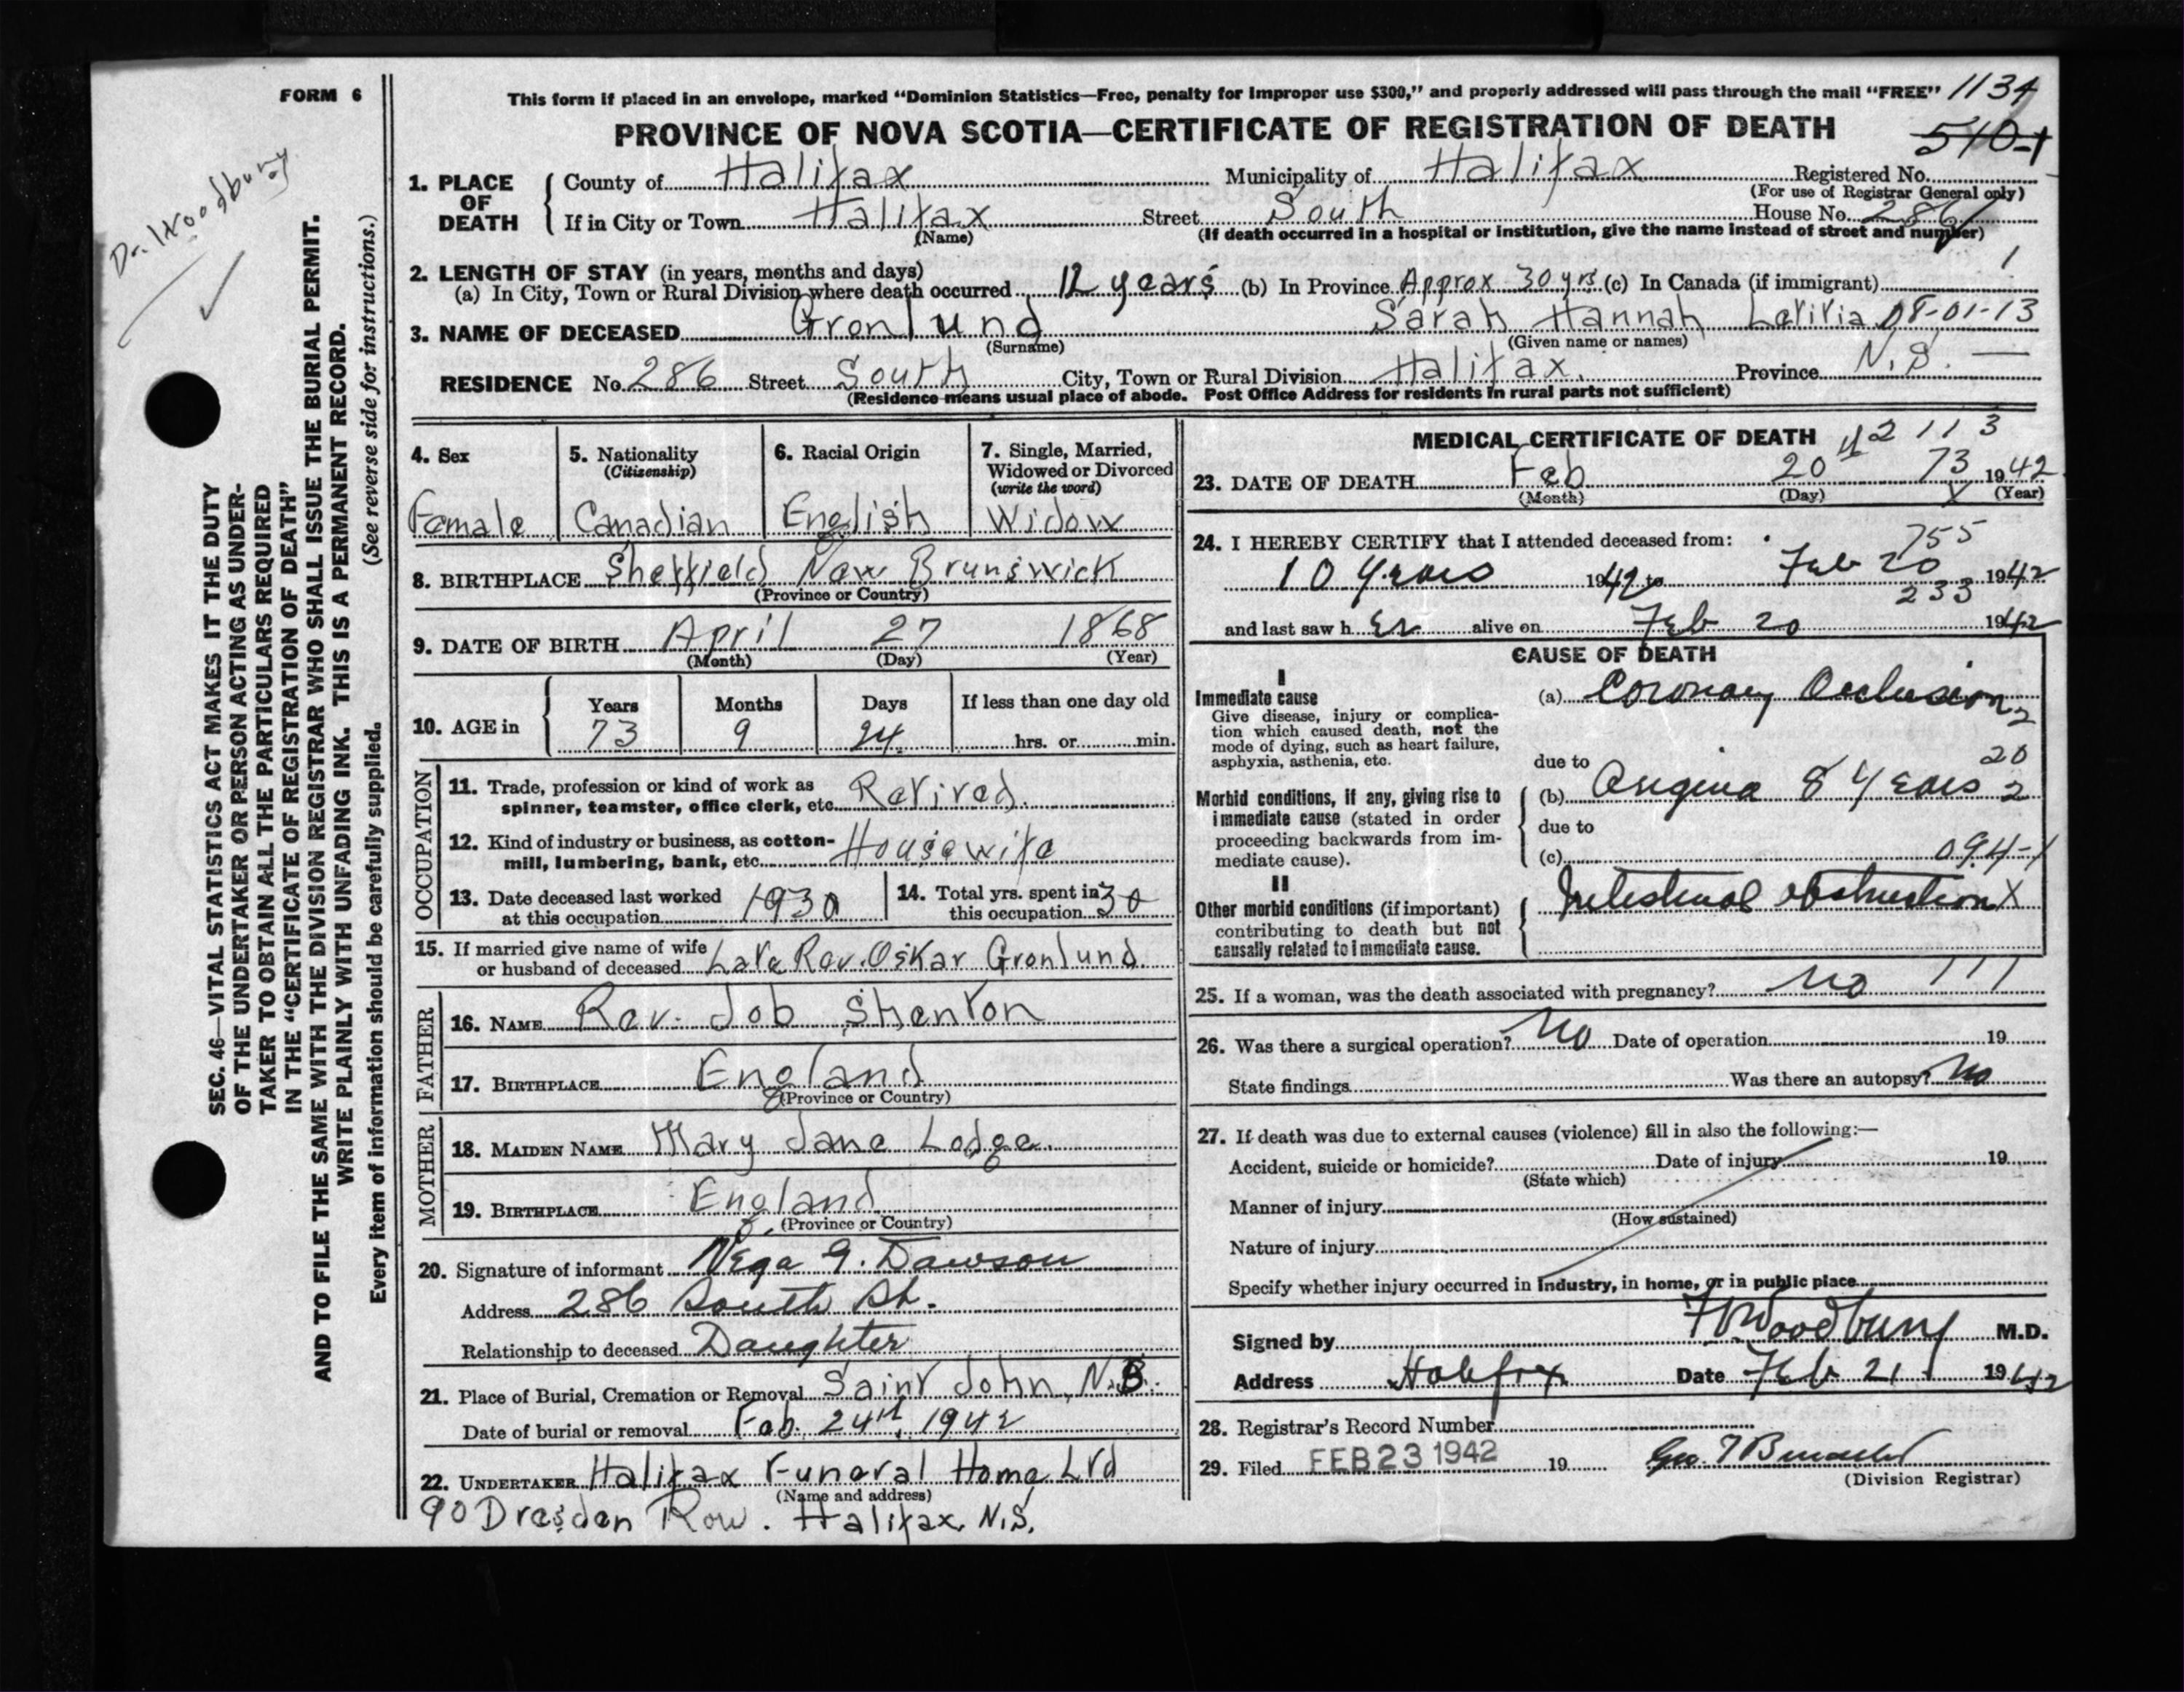 FORM 6
This form if placed in an envelope, marked “Dominion Statistics—Free, penalty for improper use $300,” and properly addressed will pass through the mail “FREE” 1134
PROVINCE OF NOVA SCOTIA—CERTIFICATE OF REGISTRATION OF DEATH
510-1
Dr. Woodbury
SEC. 46—VITAL STATISTICS ACT MAKES IT THE DUTY
OF THE UNDERTAKER OR PERSON ACTING AS UNDER-
TAKER TO OBTAIN ALL THE PARTICULARS REQUIRED
IN THE “CERTIFICATE OF REGISTRATION OF DEATH”
AND TO FILE THE SAME WITH THE DIVISION REGISTRAR WHO SHALL ISSUE THE BURIAL PERMIT.
WRITE PLAINLY WITH UNFADING INK. THIS IS A PERMANENT RECORD.
Every item of information should be carefully supplied. (See reverse side for instructions.)
1. PLACE OF DEATH
County of Halifax Municipality of Halifax Registered No.
(For use of Registrar General only)
If in City or Town Halifax Street South House No. 286
(Name) (If death occurred in a hospital or institution, give the name instead of street and number)
2. LENGTH OF STAY (in years, months and days) 1
(a) In City, Town or Rural Division where death occurred 12 years (b) In Province Approx 30 yrs (c) In Canada (if immigrant)
3. NAME OF DECEASED Gronlund Sarah Hannah Letitia 08-01-13
(Surname) (Given name or names)
RESIDENCE No. 286 Street South City, Town or Rural Division Halifax. Province N.S. —
(Residence means usual place of abode. Post Office Address for residents in rural parts not sufficient)
4. Sex
Female
5. Nationality
(Citizenship)
Canadian
6. Racial Origin
English
7. Single, Married,
Widowed or Divorced
(write the word)
Widow
8. BIRTHPLACE Sheffield New Brunswick
(Province or Country)
9. DATE OF BIRTH April 27 1868
(Month) (Day) (Year)
10. AGE in
Years Months Days If less than one day old
73 9 24 hrs. or min.
OCCUPATION
11. Trade, profession or kind of work as
spinner, teamster, office clerk, etc. Retired.
12. Kind of industry or business, as cotton-
mill, lumbering, bank, etc. Housewife
13. Date deceased last worked
at this occupation 1930
14. Total yrs. spent in
this occupation 30
15. If married give name of wife
or husband of deceased Late Rev. Oskar Gronlund.
FATHER
16. NAME Rev. Job Shenton
17. BIRTHPLACE England
(Province or Country)
MOTHER
18. MAIDEN NAME Mary Jane Lodge.
19. BIRTHPLACE England
(Province or Country)
20. Signature of informant Vega G. Dawson
Address 286 South St.
Relationship to deceased Daughter
21. Place of Burial, Cremation or Removal Saint John, N.B.
Date of burial or removal Feb. 24th, 1942
22. UNDERTAKER Halifax Funeral Home Ltd
(Name and address)
90 Dresden Row. Halifax, N.S.
MEDICAL CERTIFICATE OF DEATH 42 11 3
23. DATE OF DEATH Feb 20th 73 1942
(Month) (Day) X (Year)
24. I HEREBY CERTIFY that I attended deceased from: 755
10 years 1942 to Feb 20 1942
233
and last saw her alive on Feb 20 1942
CAUSE OF DEATH
I
Immediate cause
Give disease, injury or complica-
tion which caused death, not the
mode of dying, such as heart failure,
asphyxia, asthenia, etc.
(a) Coronary Occlusion 2
due to 20
Morbid conditions, if any, giving rise to
immediate cause (stated in order
proceeding backwards from im-
mediate cause).
(b) Angina 8 years 2
due to
(c) 094-1
II
Other morbid conditions (if important)
contributing to death but not
causally related to immediate cause.
Intestinal obstruction X
25. If a woman, was the death associated with pregnancy? No 111
26. Was there a surgical operation? No Date of operation 19
State findings Was there an autopsy? No
27. If death was due to external causes (violence) fill in also the following:—
Accident, suicide or homicide? Date of injury 19
(State which)
Manner of injury
(How sustained)
Nature of injury
Specify whether injury occurred in industry, in home, or in public place
Signed by Woodbury M.D.
Address Halifax Date Feb 21 1942
28. Registrar's Record Number
29. Filed FEB 23 1942 19
(Division Registrar)